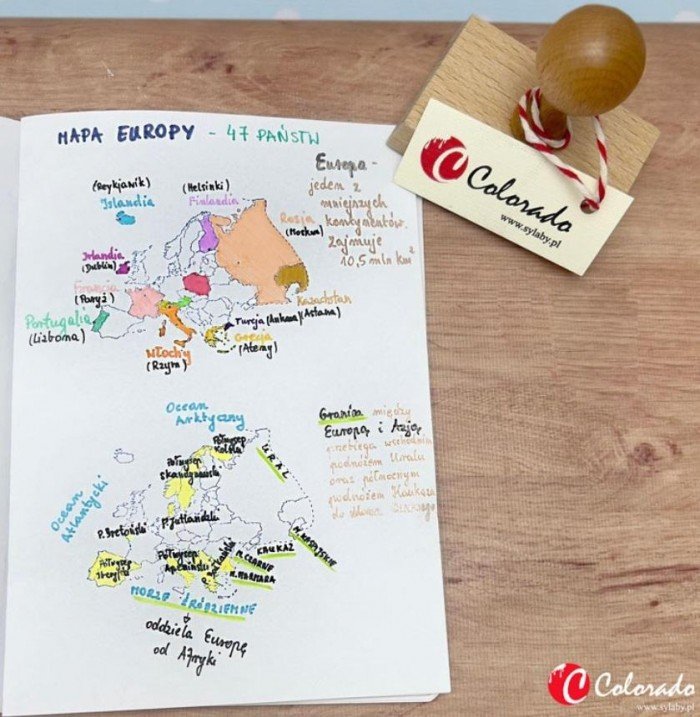 MAPA EUROPY - 47 PAŃSTW
Europa -
jeden z
mniejszych
kontynentów.
Zajmuje
10,5 mln km²
(Reykjawik)
Islandia
(Helsinki)
Finlandia
Rosja
(Moskwa)
Irlandia
(Dublin)
Francja
(Paryż)
Portugalia
(Lizbona)
Kazachstan
(Astana)
Turcja (Ankara)
Grecja
(Ateny)
Włochy
(Rzym)
Ocean
Arktyczny
Granica między
Europą i Azją
przebiega wschodnim
podnóżem Uralu
oraz północnym
podnóżem Kaukazu
do
Ocean
Atlantycki
Półwysep
Kolski
Półwysep
Skandynawski
URAL
P. Bretoński
P. Jutlandzki
M. KASPIJSKIE
KAUKAZ
M. CZARNE
M. MARMARA
Półwysep
Iberyjski
Półwysep
Apeniński
P. Bałkański
MORZE ŚRÓDZIEMNE
oddziela Europę
od Afryki
Colorado
www.sylaby.pl
Colorado
www.sylaby.pl